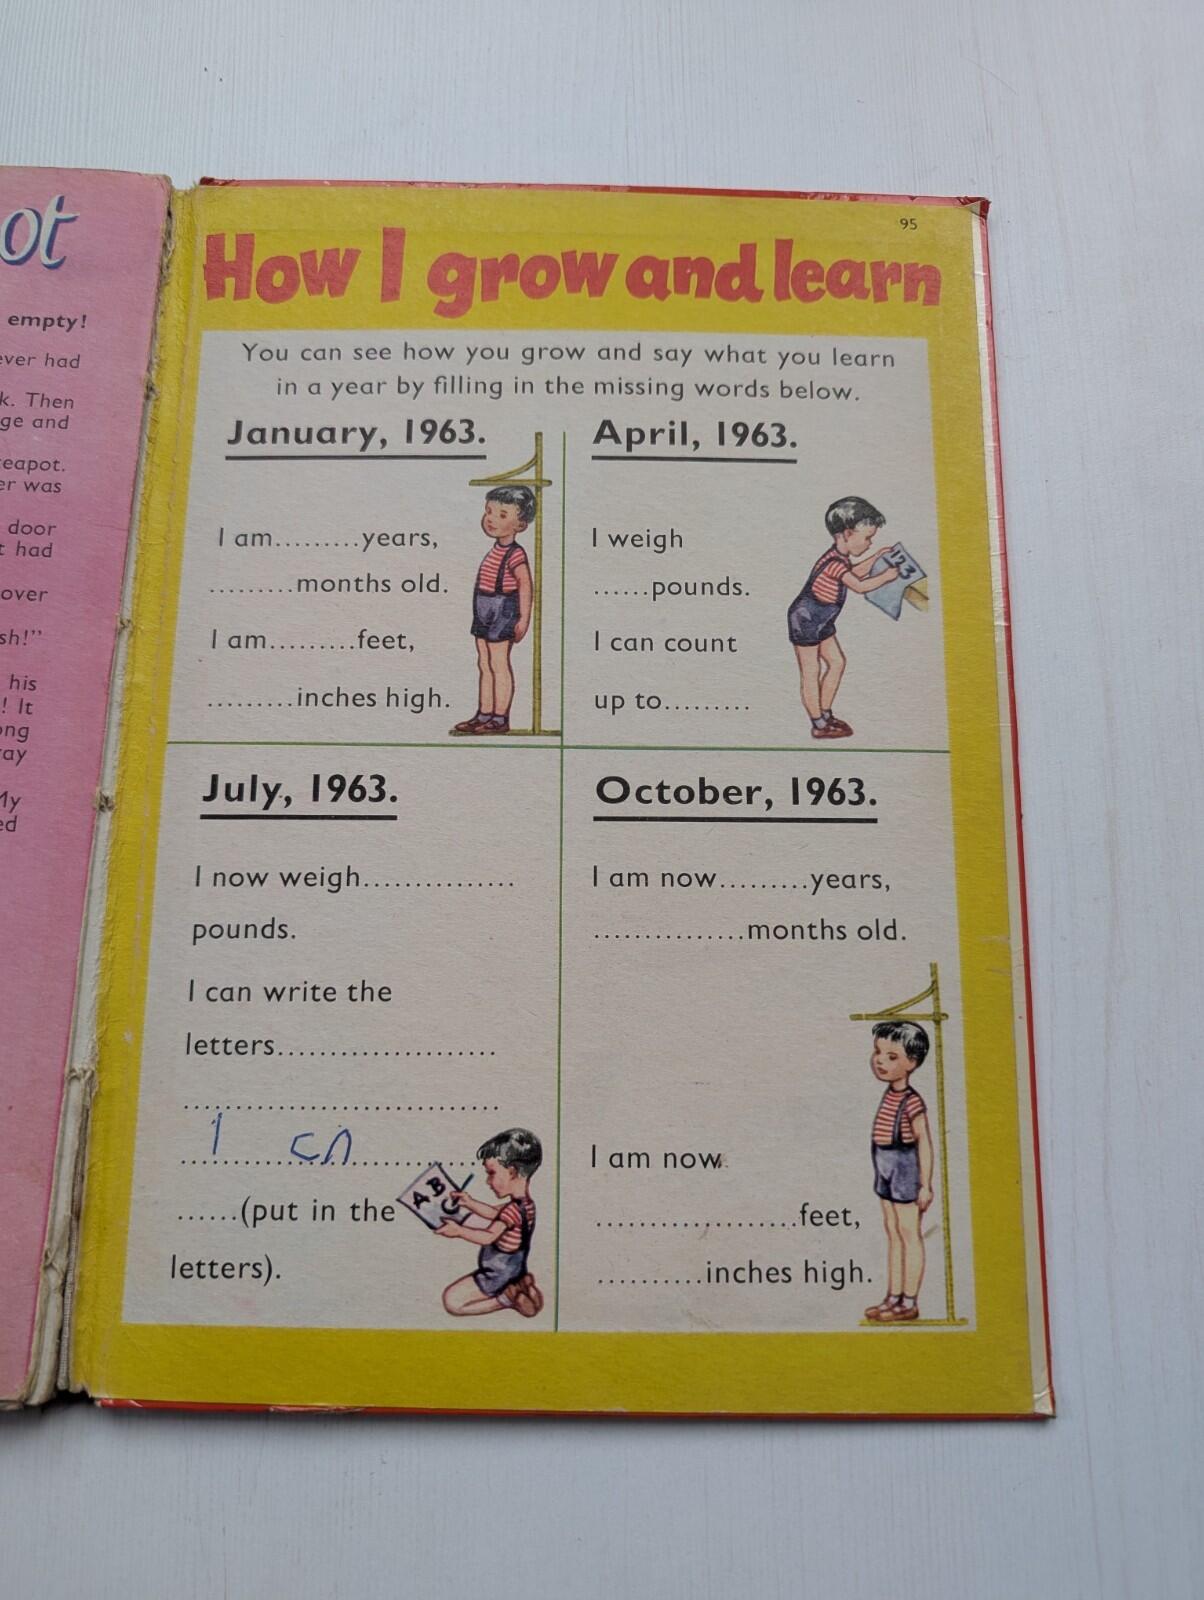 ot
empty!
ever had
k. Then
ge and
eapot.
er was
door
t had
over
sh!"
his
! It
ong
ay
My
ed
95
How I grow and learn
You can see how you grow and say what you learn
in a year by filling in the missing words below.
January, 1963.
I am.........years,
.........months old.
I am.........feet,
.........inches high.
April, 1963.
I weigh
......pounds.
I can count
up to.........
123
July, 1963.
I now weigh...............
pounds.
I can write the
letters......................
................................
I cn
......(put in the
letters).
A B C
October, 1963.
I am now.........years,
...............months old.
I am now
....................feet,
...........inches high.